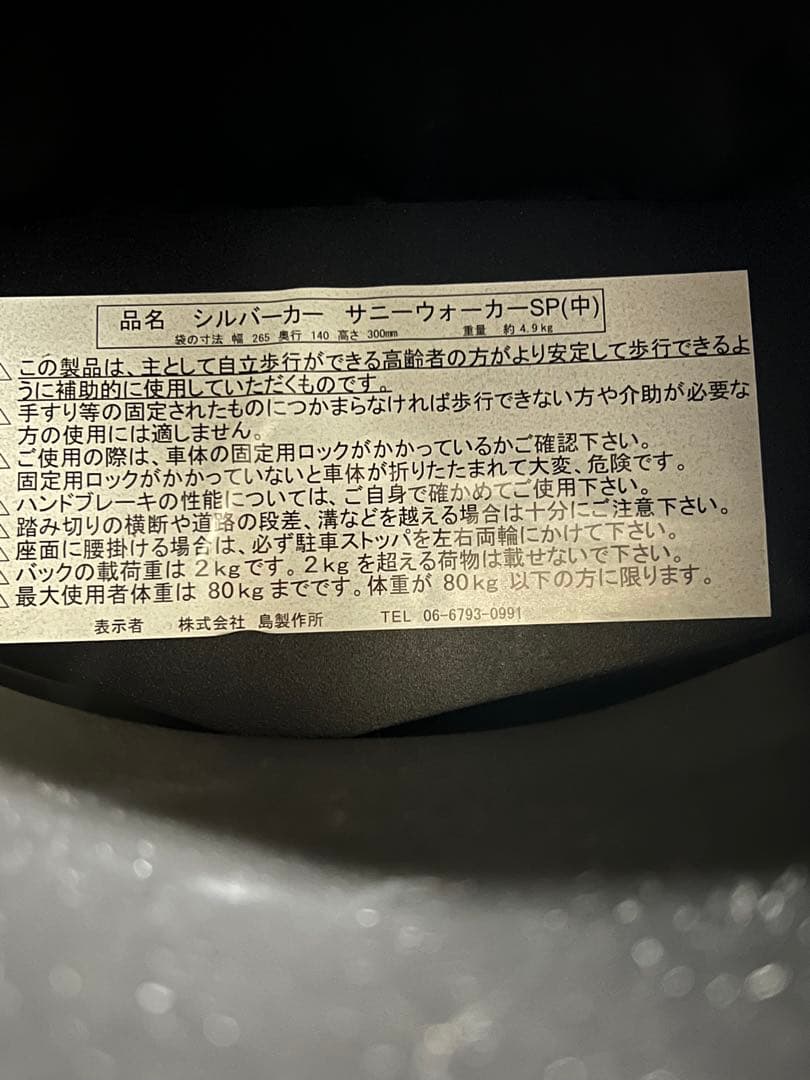 品名 シルバーカー サニーウォーカーSP(中)
袋の寸法 幅 265 奥行 140 高さ 300mm 重量 約4.9kg
この製品は、主として自立歩行ができる高齢者の方がより安定して歩行できるよ
うに補助的に使用していただくものです。
手すり等の固定されたものにつかまらなければ歩行できない方や介助が必要な
方の使用には適しません。
ご使用の際は、車体の固定用ロックがかかっているかご確認下さい。
固定用ロックがかかっていないと車体が折りたたまれて大変、危険です。
ハンドブレーキの性能については、ご自身で確かめてご使用下さい。
踏み切りの横断や道路の段差、溝などを越える場合は十分にご注意下さい。
座面に腰掛ける場合は、必ず駐車ストッパを左右両輪にかけて下さい。
バックの載荷重は2kgです。2kgを超える荷物は載せないで下さい。
最大使用者体重は80kgまでです。体重が80kg以下の方に限ります。
表示者 株式会社 島製作所 TEL 06-6793-0991